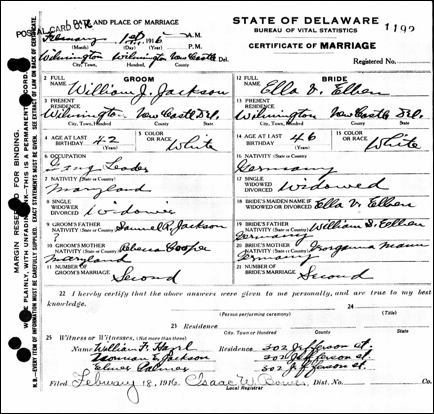 POSTAL CARD O.K.
DATE AND PLACE OF MARRIAGE
STATE OF DELAWARE
BUREAU OF VITAL STATISTICS
1192
CERTIFICATE OF MARRIAGE
Registered No.
February 1st 1916 A.M. P.M.
Wilmington Wilmington New Castle Del.
City, Town, Hundred County
MARGIN RESERVED FOR BINDING.
WRITE PLAINLY, WITH UNFADING INK—THIS IS A PERMANENT RECORD.
N.B.—EVERY ITEM OF INFORMATION MUST BE CAREFULLY SUPPLIED. EXACT STATEMENTS MUST BE GIVEN. SEE EXTRACT OF LAW ON BACK OF CERTIFICATE.
GROOM
2 FULL NAME William J. Jackson
3 PRESENT RESIDENCE Wilmington New Castle Del.
City, Town, Hundred County State
4 AGE AT LAST BIRTHDAY 42
5 COLOR OR RACE White
6 OCCUPATION Gang Leader
7 NATIVITY (State or Country) Maryland
8 SINGLE WIDOWER DIVORCED Widower
9 GROOM'S FATHER Samuel R. Jackson
NATIVITY (State or Country) ?
10 GROOM'S MOTHER Rebecca Cooper
NATIVITY (State or Country) Maryland
11 NUMBER OF GROOM'S MARRIAGE Second
BRIDE
12 FULL NAME Ella V. Elben
13 PRESENT RESIDENCE Wilmington New Castle Del.
City, Town, Hundred County State
14 AGE AT LAST BIRTHDAY 46
15 COLOR OR RACE White
16 NATIVITY (State or Country) Germany
17 SINGLE WIDOWED DIVORCED Widowed
18 BRIDE'S MAIDEN NAME IF WIDOWED OR DIVORCED Ella V. Elben
19 BRIDE'S FATHER William Elben
NATIVITY (State or Country) Germany
20 BRIDE'S MOTHER
NATIVITY (State or Country) Germany
21 NUMBER OF BRIDE'S MARRIAGE Second
22 I hereby certify that the above answers were given to me personally, and are true to my best knowledge.
24
(Person performing ceremony)
23 Residence
City, Town or Hundred County State
25 Witness or Witnesses, (not more than two) Residence
William F. 302 Jefferson st
Norman E. Jackson 302 Jefferson st.
Elmer Palmer 302 Jefferson st
Filed February 18, 1916 Isaac W. Dist. No. Co.
Local Registrar